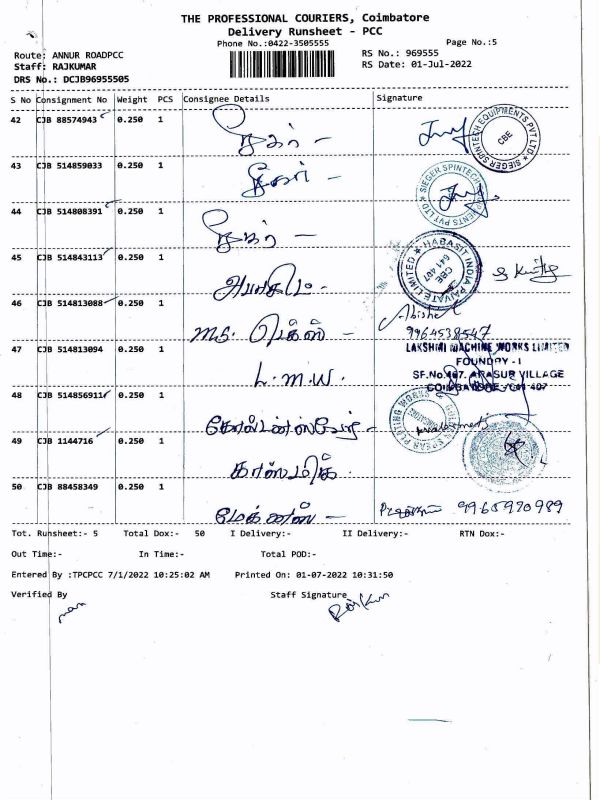 THE PROFESSIONAL COURIERS, Coimbatore
Delivery Runsheet - PCC
Phone No.:0422-3505555
Page No.:5
Route: ANNUR ROADPCC
RS No.: 969555
Staff: RAJKUMAR
RS Date: 01-Jul-2022
DRS No.: DCJB96955505
S No Consignment No Weight PCS Consignee Details Signature
42 CJB 88574943 0.250 1
SIEGER SPINTECH EQUIPMENTS PVT LTD
CBE
43 CJB 514859033 0.250 1
SIEGER SPINTECH EQUIPMENTS PVT LTD
44 CJB 514808391 0.250 1
45 CJB 514843113 0.250 1
HABASIT INDIA PRIVATE LIMITED
CBE
641 407
46 CJB 514813088 0.250 1
M.S.
9964538547
47 CJB 514813094 0.250 1 L.M.W.
LAKSHMI MACHINE WORKS LIMITED
FOUNDRY - I
SF.No.407. ARASUR VILLAGE
COIMBATORE - 641 407
48 CJB 514856911 0.250 1
49 CJB 1144716 0.250 1
50 CJB 88458349 0.250 1
9965970989
Tot. Runsheet:- 5 Total Dox:- 50 I Delivery:- II Delivery:- RTN Dox:-
Out Time:- In Time:- Total POD:-
Entered By :TPCPCC 7/1/2022 10:25:02 AM Printed On: 01-07-2022 10:31:50
Verified By Staff Signature